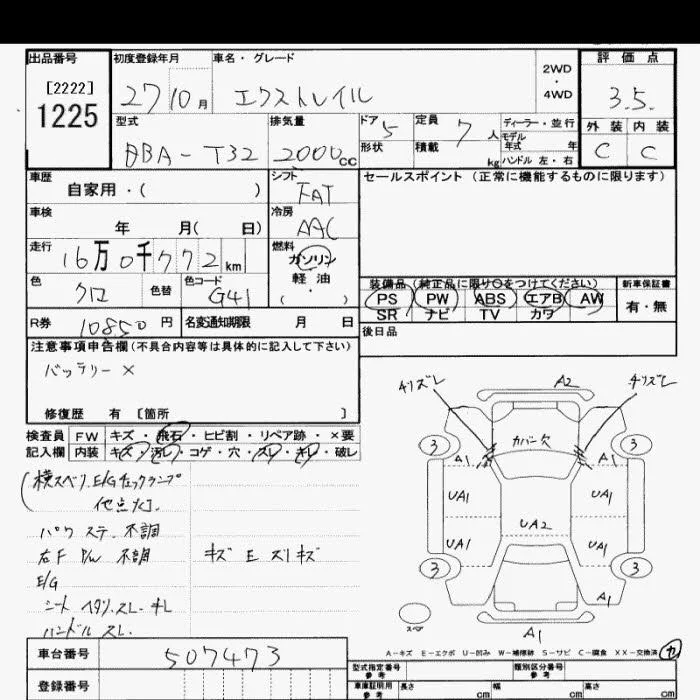 出品番号 初度登録年月 車名・グレード 2WD・4WD 評価点
[2222]
1225
27 10月 エクストレイル 3.5
型式 排気量 ドア 5 定員 7人 ディーラー・並行
モデル年式 年
外装 内装
DBA-T32 2000cc 形状 積載 kg ハンドル 左・右 C C
車歴 自家用・( ) シフト FAT セールスポイント(正常に機能するものに限ります)
車検 年 月( 日) 冷房 AAC
走行 16万0千772km 燃料 ガソリン 軽油 ( ・ )
色 クロ 色替 色コード G41 装備品(純正品に限り〇をつけてください) 新車保証書
PS PW ABS エアB AW 有・無
SR ナビ TV カワ
R券 10850円 名変通知期限 月 日 後日品
注意事項申告欄(不具合内容等は具体的に記入して下さい)
バッテリー×
修復歴 有 [箇所 ]
検査員 FW キズ・飛石・ヒビ割・リペア跡・×要
記入欄 内装 キズ・汚レ・コゲ・穴・スレ・キレ・破レ
横スベリ.E/Gチェックランプ
他点灯.
パワステ 不調
右F P/W 不調 キズ E ズリキズ
E/G
シート ヘタリ.スレ.キレ
ハンドル スレ.
チリズレ A2 チリズレ
3 カバー欠 3
A1 A1
UA1 UA1
UA2
UA1 UA1
3 3
ス
A1
A-キズ E-エクボ U-凹み W-補修跡 S-サビ C-腐食 XX-交換済
車台番号 507473
登録番号
型式指定番号 参考 類別区分番号 参考
車庫証明用 参考 長さ cm 幅 cm 高さ cm